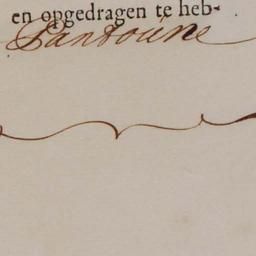 en opgedragen te heb-
Pantoúne